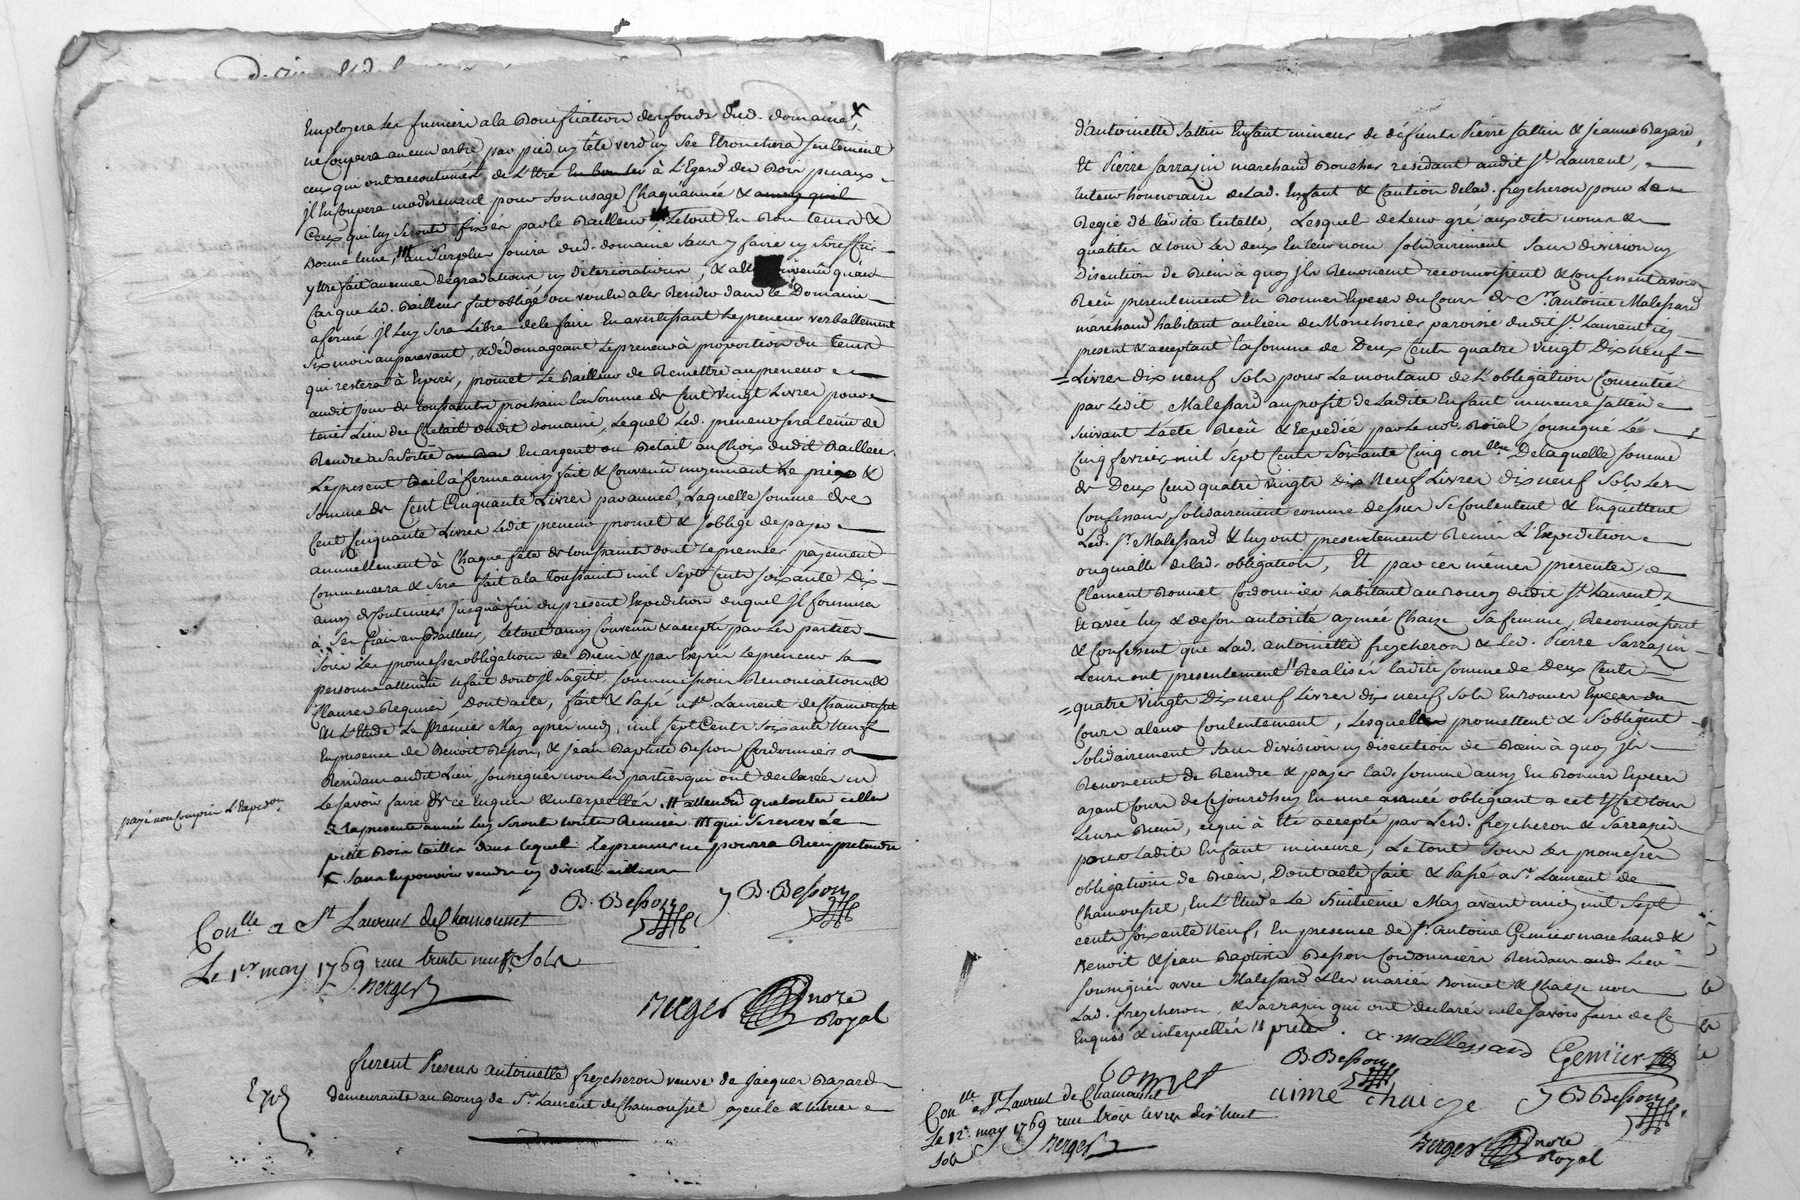 Employera les fumiers a la Bonification des fonds dud. domaine x
ne Coupera aucun arbre par pied ny tête verd ny Sec Etronchera seulement
ceux qui ont accoutumés de L'Etre à L'Egard des Bois
Il En Coupera modérément pour Son usage Chaquannée &
Ceux qui luy Seronts fixés par le Bailleur Le tout En Bon tems &
Bonne lune, au Surplus Jouira dud. domaine Sans y faire ny Souffrir
y Etre fait aucunes dégradations ny déteriorations, & convenû qu'au
Cas que Led. Bailleur fut obligé ou voulu aler Resider dans le Domaine
afermé Il Luy Sera Libre de le faire En avertissant Le preneur verballement
Six mois auparavant, & dédomageant Le preneur à proportion du tems
qui restera à Expirer, promet Le Bailleur de Remettre au preneur
audit Jour de toussaints prochain la Somme de Cent vingt Livres pour
tenir Lieu de Chetail dudit domaine, Lequel Led. preneur Sera tenû de
Rendre a Sa Sortie En argent ou Betail au Choix dudit Bailleur.
Le present Bail à ferme ainsy fait & Convenû moyennant Le prix &
Somme de Cent Cinquante Livres par année, Laquelle Somme de
Cent Cinquante Livres Ledit preneur promet & Soblige de payer
annuellement à Chaque fête de toussaints dont Le premier payement
Commencera & Sera fait a la toussaint mil Sept Cents Soixante Dix
ainsy de Continuer Jusqu'a fin du présent Expedition duquel Il fournira
à Ses frais au Bailleur, Le tout ainsy Convenû & accepté par Les parties
Sous Les promesses obligations de Biens & par Exprès Le preneur Sa
personne attendû Le fait dont Il Sagit, Soummissions Renonciations &
Clauses Requises Dont acte, fait & Passé a St. Laurent de Chamousset
En L'Etude Le Prémier May après midy, mil Sept Cents Soixante Neuf
En presence de Benoit Besson, & Jean Baptiste Besson Cordonniers
Residans audit Lieu, Soussignés non Les parties qui ont déclarées ne
Le Savoir faire de ce Enquis & interpellés. // attendû que toutes celles
de la presente année luy Seronts Remises. /// qui Sera
petit Bois taillis dans lequel Le preneur ne pourra Rien pretendre
x Sans En pouvoir vendre ny divertir ailleurs
payé non Compris L'Expedon.
B. Besson J B. Besson
Conlle a St Laurent de Chamousset
Le 1er may 1769 reçu trente neuf Sols
Berger
Berger Nore Royal
Expé
furent Presens Antoinette freycheron veuve de Jacques Bazard
demeurante au Bourg de St. Laurent de Chamousset ayeule & tutrice
d'antoinette Sattin Enfant mineure de défunts Pierre Sattin & Jeanne Bazard,
Et Pierre Sarrazin marchand Boucher residant audit St. Laurent,
tuteur honoraire de Lad. Enfant & Caution de lad. freycheron pour La
Regie de ladite tutelle, Lesquels de Leur gré auxdits noms &
qualités & tous Les deux En leur nom Solidairement Sans division ny
Discution de Biens à quoy Ils Renoncent reconnoissent & Confessent avoir
Reçû présentement En Bonnes Especes du Cours de Sr. antoine Malessard
marchand habitant au lieu de Monchorier paroisse dudit St. Laurent icy
present & acceptant la Somme de Deux Cents quatre vingt Dix neuf
Livres dix neuf Sols pour Le montant de L'obligation Consentie
par Ledit Malessard au profit de Ladite Enfant mineure Sattin
Suivant L'acte Reçû & Expedié par Le nore. Roïal Soussigné Le
Cinq fevrier mil Sept Cents Soixante Cinq conllée De laquelle Somme
de Deux Cens quatre vingts Dix Neuf Livres Dix neuf Sols Les
Confessans Solidairement comme dessus Se Contentent & En quittent
Led. Sr. Malessard & luy ont presentement Remis L'Expedition
originalle de lad. obligation, Et par ces mêmes presentes
Clement Bonnet Cordonnier habitant au Bourg dudit St. Laurent
Et avec luy & de Son autorité aymée Chaize Sa femme, Reconnoissent
& Confessent que Lad. antoinette freycheron & Led. Pierre Sarrazin
Leurs ont presentement // Realisés ladite Somme de Deux Cents
quatre vingts Dix neuf Livres dix neuf Sols En Bonnes Especes du
Cours a leur Contentement, Lesquels promettent & S'obligent
Solidairement Sans division ny discution de Biens à quoy Ils
Renoncent de Rendre & payer lad. Somme aussy En Bonnes Especes
ayant Cours de Cejourdhuy En une année obligeant a cet Effet tous
Leurs Biens, ce qui à Eté accepté par Lesd. freycheron & Sarrazin
pour Ladite Enfant mineure, Le tout Sous Les promesses
obligations de Biens, Dont acte fait & Passé a St. Laurent de
Chamousset, En L'Etude Le Huitieme May avant midy mil Sept
cents Soixante Neuf, En presence de Sr. Antoine Genier marchand &
Benoit & Jean Baptiste Besson Cordonniers Residans aud. Lieu
Soussignés avec Malessard & Les mariés Bonnet & Chaize non
Lad. freycheron & Sarrazin qui ont déclarés ne le Savoir faire de Ce
Enquis & interpellés // prétés.
a mallessard Genier
Bonnet B. Besson
aimé chaize J B Besson
Conlle a St Laurent de Chamousset
Le 12 may 1769 reçu trois Livres dix huit
Sols Berger
Berger Nore Royal